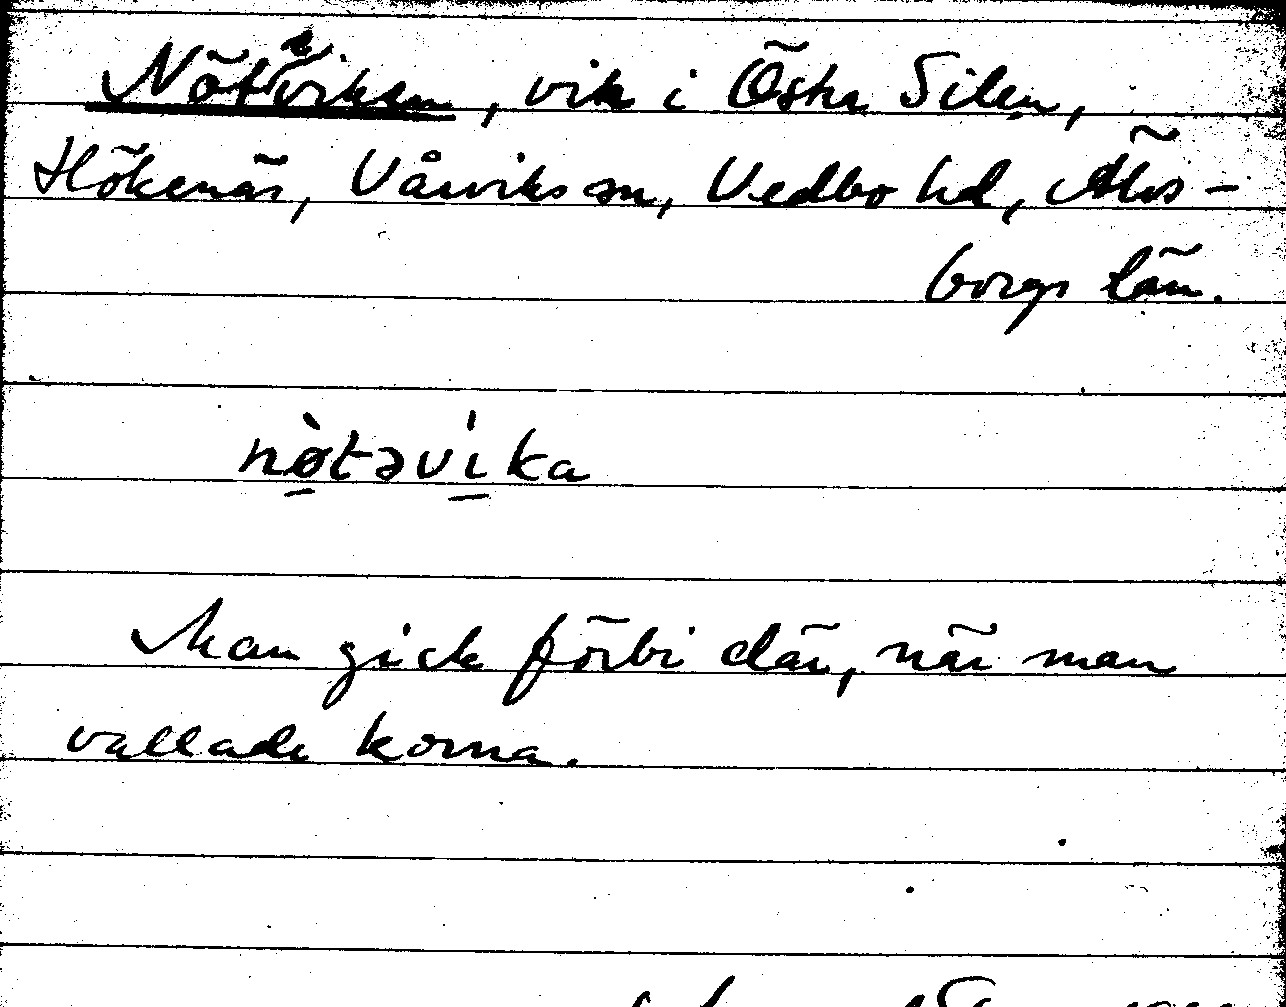 Nöteviken, vik i Östra Silen,
Hökenäs, Vårviks sn, Vedbo hd, Älvs-
borgs län.
nø̀təvi̍ka
Man gick förbi där, när man
vallade korna.